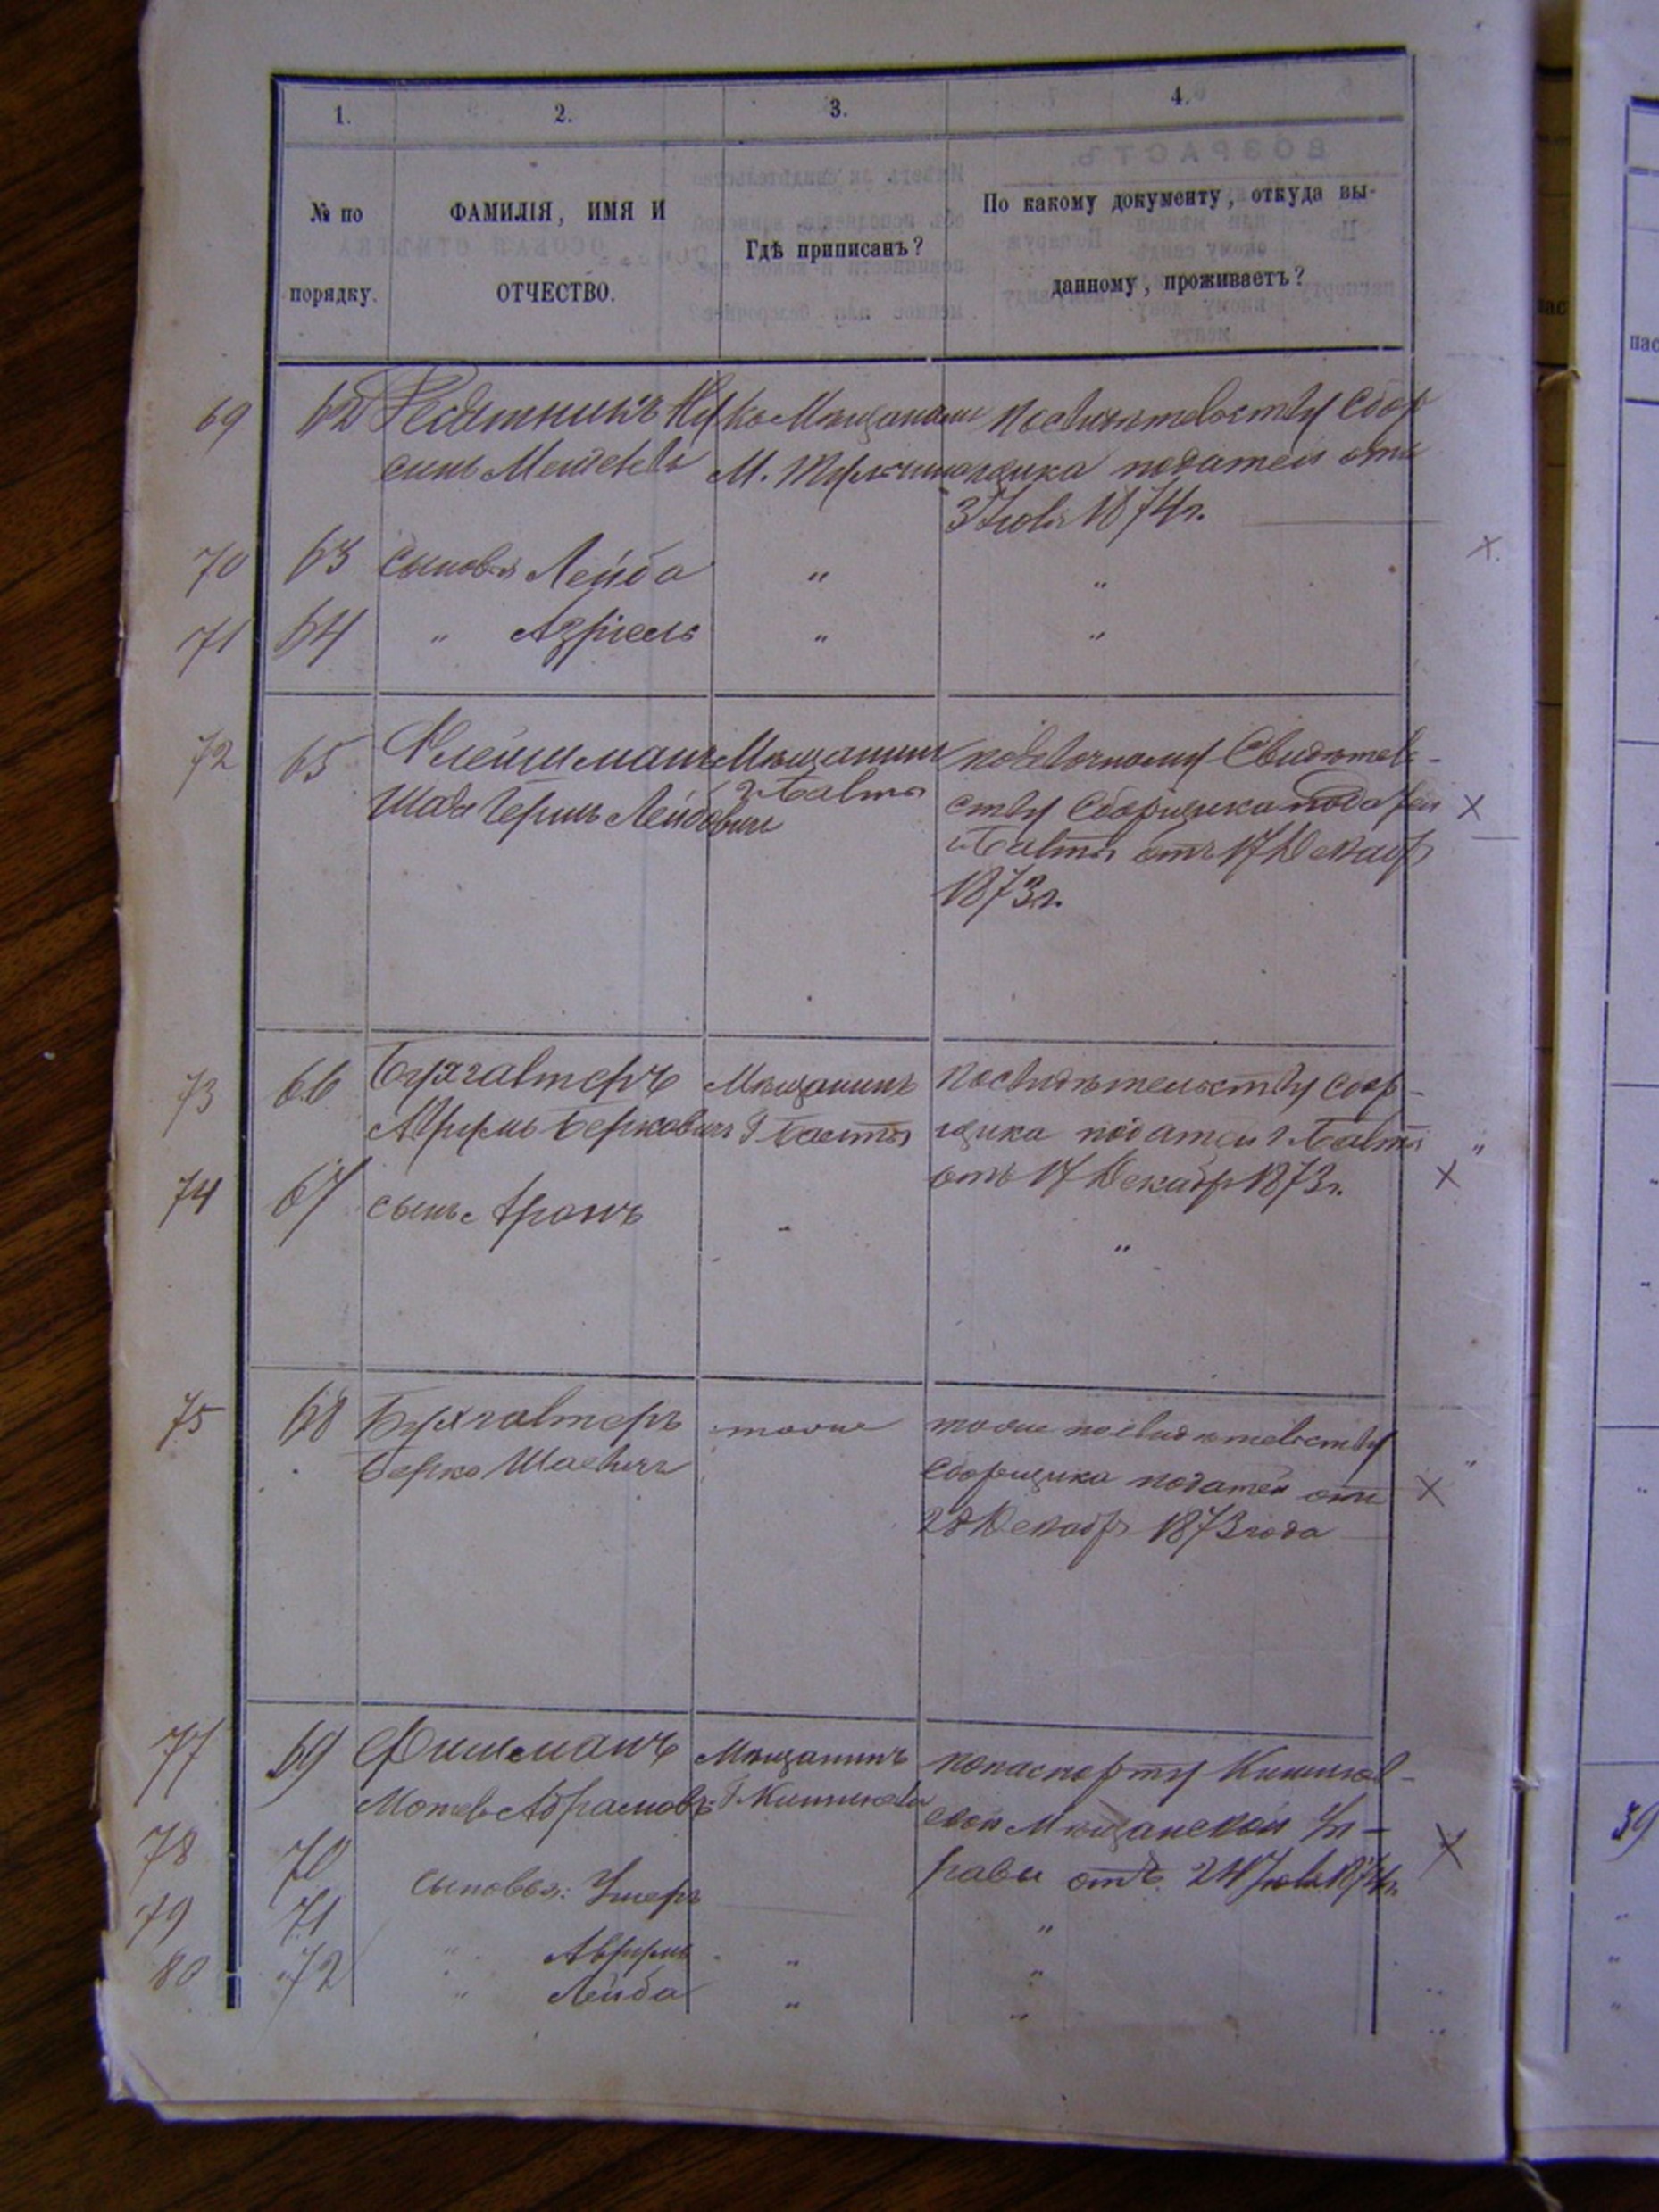 1. 2. 3. 4.
№ по порядку.
ФАМИЛІЯ, ИМЯ И
ОТЧЕСТВО.
Гдѣ приписанъ?
По какому документу, откуда вы-
данному, проживаетъ?
69 62
Мѣщанинъ
по свидѣтельству Сбор
М.
щика податей отъ
3 Іюля 1874 г.
70 63 сыновья Лейба " "
71 64 " Азріель " "
72 65 Флейшманъ Мѣщанинъ по Свидѣтель-
Гершъ Лейбовичъ г Балты
ству Сборщика податей
г Балты отъ 17 Декабр
1873 г.
73 66 Бухгалтеръ Мѣщанинъ по свидѣтельству Сбор-
Аврумъ Берковичъ Г Балты щика податей г Балты
отъ 17 Декабр 1873 г.
74 67 сынъ Аронъ " "
75 68 Бухгалтеръ тоже тоже по свидѣтельству
Берко Шаевичъ Сборщика податей отъ
28 Декабр 1873 года
77 69 Фишманъ Мѣщанинъ по паспорту Кишинев-
Мотель Абрамовъ Г Кишинева ской Мѣщанской Уп-
равы отъ 24 Іюля 1874 г.
78 70 сыновья: Ушеръ "
79 71 " Аврумъ " "
80 72 " Лейба " "
пас
39